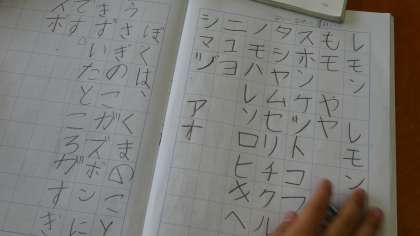 レモン レモン
もモ やヤ
スホンケツトコ
タシヤムセリチクル
ノモハレソロヒキヘ
ニユヨ
シマヅ アオ
ぼくは、くまのこと
うさぎのこがズボンに
きずいたところがすき
です。
ズボ